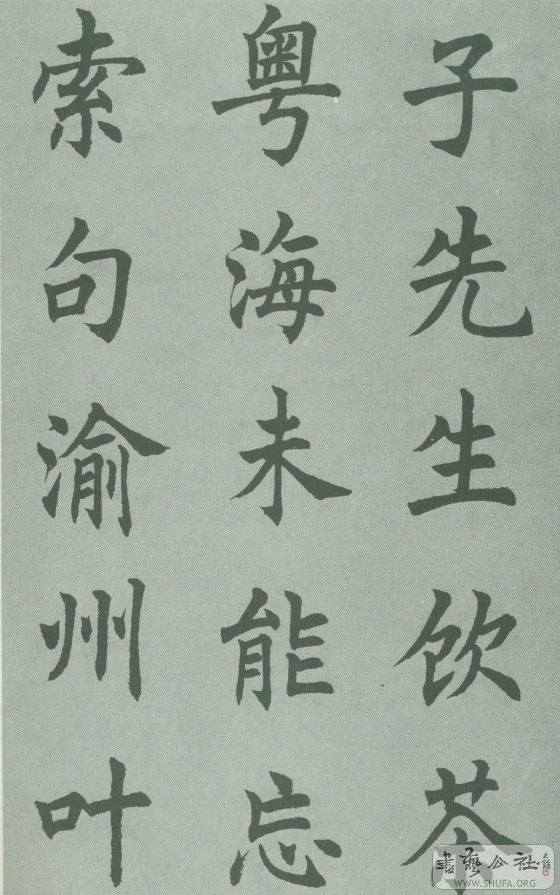 子先生饮茶
粤海未能忘
索句渝州叶
書藝公社
WWW.SHUFA.ORG